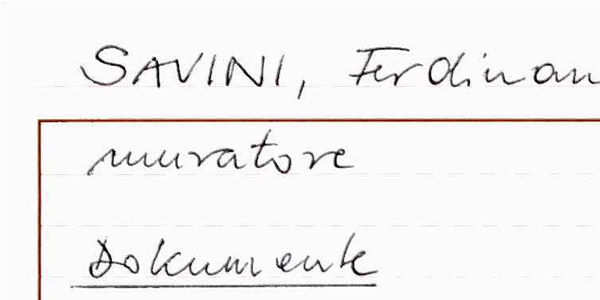 SAVINI, Ferdinan
muratore
Dokumente